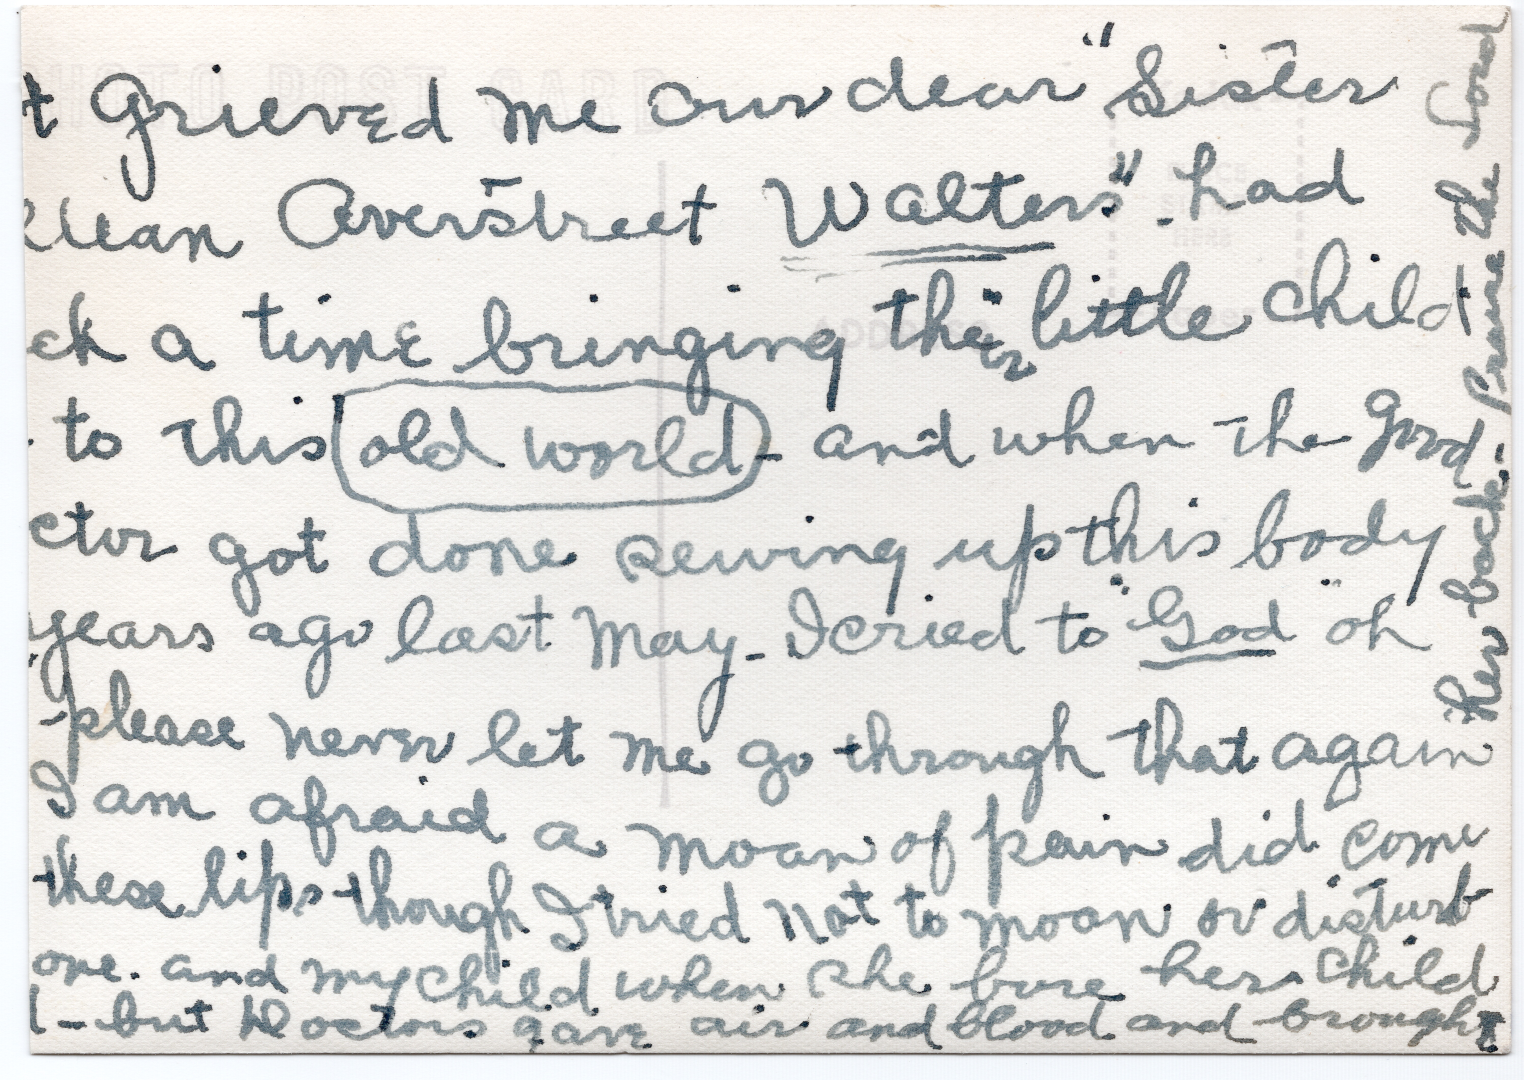 t grieved me our dear "Sister
llean Averstreet Walters". had
ek a time bringing their little child
. to this old world - and when the good
ctor got done sewing up this body
years ago last May - I cried to "God" oh
-please never let me go through that again
I am afraid a moan of pain did come
these lips though I tried not to moan or disturb
one. and my child when she bore her child
d - but Doctors gave air and blood and brought
her back. Praise the Lord
PHOTO POST CARD
PLACE
STAMP
HERE
ADDRESS